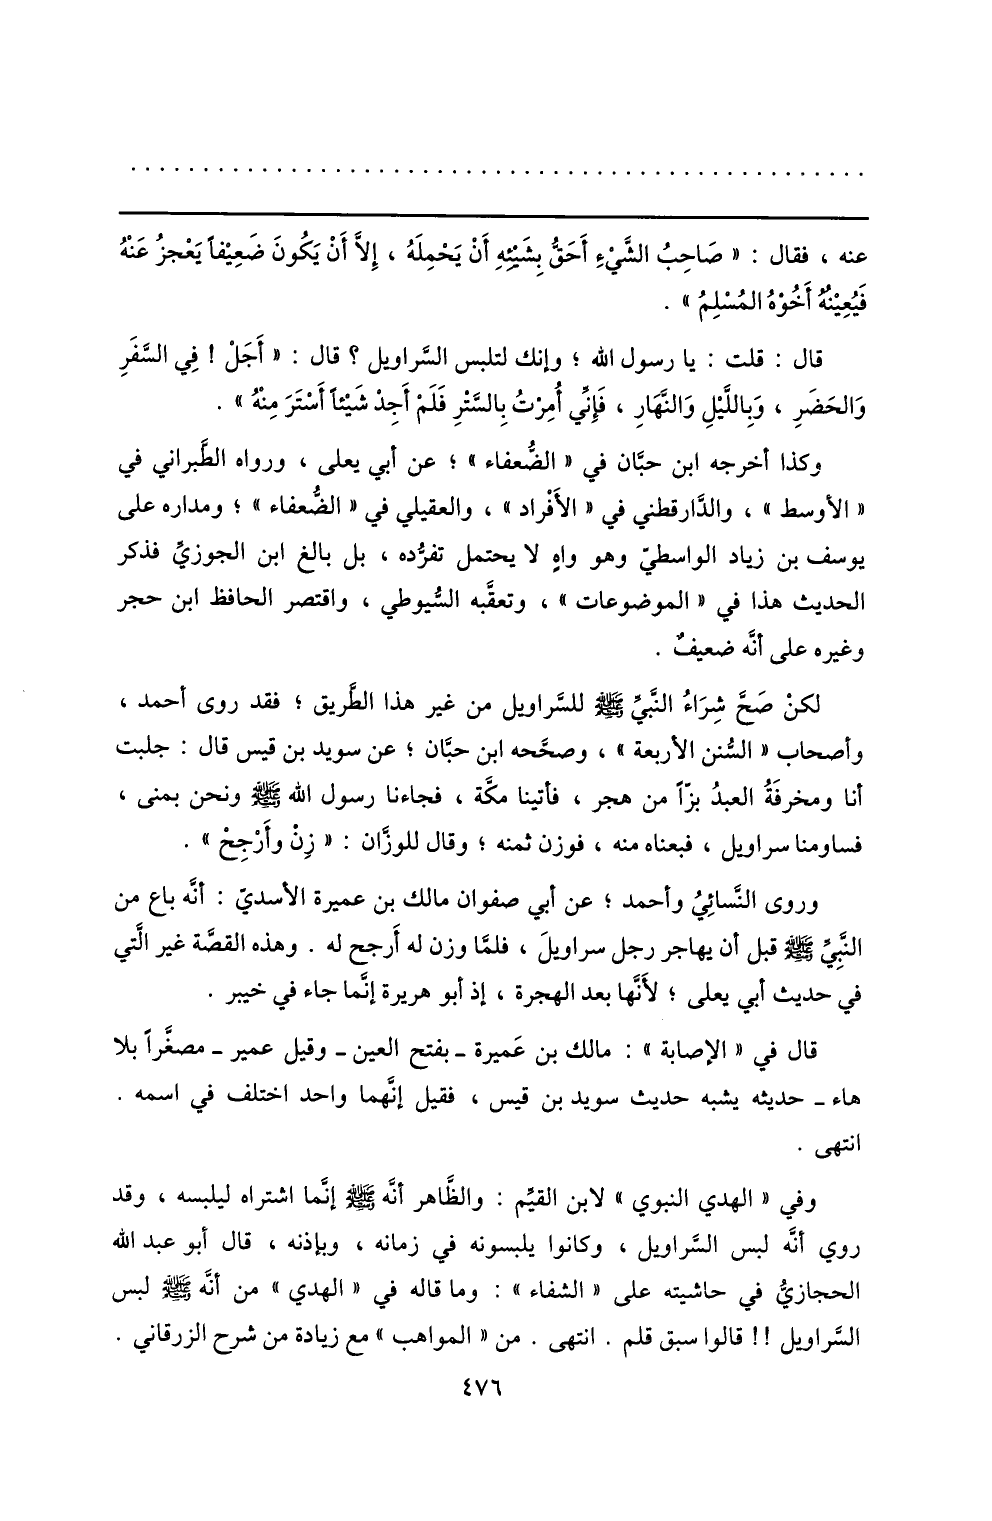 عنه ، فقال : « صَاحِبُ الشَّيْءِ أَحَقُّ بِشَيْئِهِ أَنْ يَحْمِلَهُ ، إِلاَّ أَنْ يَكُونَ ضَعِيْفاً يَعْجزُ عَنْهُ
فَيُعِيْنُهُ أَخُوْهُ المُسْلِمُ » .
قال : قلت : يا رسول الله ؛ وإنك لتلبس السَّراويل ؟ قال : « أَجَلْ ! فِي السَّفَرِ
وَالحَضَرِ ، وَبِاللَّيْلِ وَالنَّهَارِ ، فَإِنِّي أُمِرْتُ بِالسَّتْرِ فَلَمْ أَجِدْ شَيْئاً أَسْتَرَ مِنْهُ » .
وكذا أخرجه ابن حبَّان في « الضُّعفاء » ؛ عن أبي يعلى ، ورواه الطَّبراني في
« الأوسط » ، والدَّارقطني في « الأَفْراد » ، والعقيلي في « الضُّعفاء » ؛ ومداره على
يوسف بن زياد الواسطيّ وهو واهٍ لا يحتمل تفرُّده ، بل بالغ ابن الجوزيِّ فذكر
الحديث هذا في « الموضوعات » ، وتعقَّبه السُّيوطي ، واقتصر الحافظ ابن حجر
وغيره على أنَّه ضعيفٌ .
لكنْ صَحَّ شِرَاءُ النَّبيِّ ﷺ للسَّراويل من غير هذا الطَّريق ؛ فقد روى أحمد ،
وأصحاب « السُّنن الأربعة » ، وصحَّحه ابن حبَّان ؛ عن سويد بن قيس قال : جلبت
أنا ومخرفَةُ العبدُ بزّاً من هجر ، فأتينا مكَّة ، فجاءنا رسول الله ﷺ ونحن بمنى ،
فساومنا سراويل ، فبعناه منه ، فوزن ثمنه ؛ وقال للوزَّان : « زِنْ وأَرْجِحْ » .
وروى النَّسائِيُ وأحمد ؛ عن أبي صفوان مالك بن عميرة الأسديّ : أنَّه باع من
النَّبِيِّ ﷺ قبل أن يهاجر رجل سراويلَ ، فلمَّا وزن له أَرجح له . وهذه القصَّة غير الَّتي
في حديث أبي يعلى ؛ لأَنَّها بعد الهجرة ، إذ أبو هريرة إنَّما جاء في خيبر .
قال في « الإصابة » : مالك بن عَميرة ـ بفتح العين ـ وقيل عمير ـ مصغَّراً بلا
هاء ـ حديثه يشبه حديث سويد بن قيس ، فقيل إنَّهما واحد اختلف في اسمه .
انتهى .
وفي « الهدي النبوي » لابن القيِّم : والظَّاهر أنَّه ﷺ إنَّما اشتراه ليلبسه ، وقد
روي أنَّه لبس السَّراويل ، وكانوا يلبسونه في زمانه ، وبإذنه ، قال أبو عبد الله
الحجازيُّ في حاشيته على « الشفاء » : وما قاله في « الهدي » من أنَّه ﷺ لبس
السَّراويل !! قالوا سبق قلم . انتهى . من « المواهب » مع زيادة من شرح الزرقاني .
٤٧٦